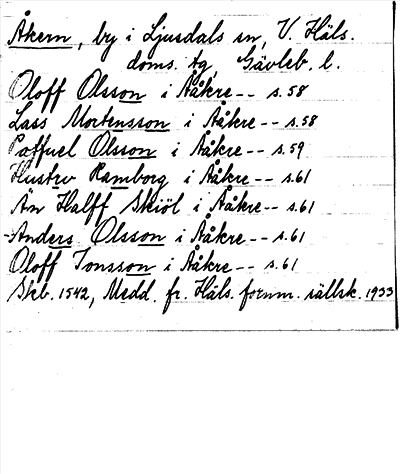 Åkern, by i Ljusdals sn, V. Häls.
doms. tg, Gävleb. l.
Oloff Olsson i Ååkre -- s. 58
Lass Mortensson i Ååkre -- s. 58
Påffuel Olsson i Ååkre -- s. 59
Hustrv Ramborg i Ååkre -- s. 61
Än Halff Skiöl i Ååkre -- s. 61
Anders Olsson i Ååkre -- s. 61
Oloff Jonsson i Ååkre -- s. 61
Skb. 1542, Medd. fr. Häls. fornm. sällsk. 1933